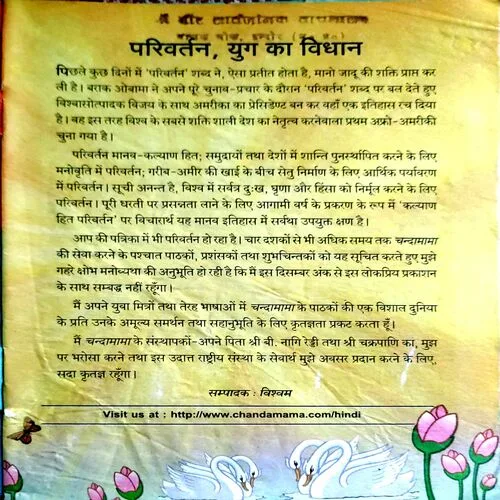 श्री वीर सार्वजनिक वाचनालय
परिवर्तन, युग का विधान
पिछले कुछ दिनों में 'परिवर्तन' शब्द ने, ऐसा प्रतीत होता है, मानो जादू की शक्ति प्राप्त कर
ली है। बराक ओबामा ने अपने पूरे चुनाव-प्रचार के दौरान 'परिवर्तन' शब्द पर बल देते हुए
विश्वासोत्पादक विजय के साथ अमरीका का प्रेसिडेण्ट बन कर वहाँ एक इतिहास रच दिया
है। वह इस तरह विश्व के सबसे शक्ति शाली देश का नेतृत्व करनेवाला प्रथम अफ्रो-अमरीकी
चुना गया है।
परिवर्तन मानव-कल्याण हित; समुदायों तथा देशों में शान्ति पुनर्स्थापित करने के लिए
मनोवृति में परिवर्तन; गरीब-अमीर की खाई के बीच सेतु निर्माण के लिए आर्थिक पर्यावरण
में परिवर्तन। सूची अनन्त है, विश्व में सर्वत्र दुःख, घृणा और हिंसा को निर्मूल करने के लिए
परिवर्तन। पूरी धरती पर प्रसन्नता लाने के लिए आगामी वर्ष के प्रकरण के रूप में 'कल्याण
हित परिवर्तन' पर विचारार्थ यह मानव इतिहास में सर्वथा उपयुक्त क्षण है।
आप की पत्रिका में भी परिवर्तन हो रहा है। चार दशकों से भी अधिक समय तक चन्दामामा
की सेवा करने के पश्चात पाठकों, प्रशंसकों तथा शुभचिन्तकों को यह सूचित करते हुए मुझे
गहरे क्षोभ मनोव्यथा की अनुभूति हो रही है कि मैं इस दिसम्बर अंक से इस लोकप्रिय प्रकाशन
के साथ सम्बद्ध नहीं रहूँगा।
मैं अपने युवा मित्रों तथा तेरह भाषाओं में चन्दामामा के पाठकों की एक विशाल दुनिया
के प्रति उनके अमूल्य समर्थन तथा सहानुभूति के लिए कृतज्ञता प्रकट करता हूँ।
मैं चन्दामामा के संस्थापकों-अपने पिता श्री बी. नागि रेड्डी तथा श्री चक्रपाणि का, मुझ
पर भरोसा करने तथा इस उदात्त राष्ट्रीय संस्था के सेवार्थ मुझे अवसर प्रदान करने के लिए,
सदा कृतज्ञ रहूँगा।
सम्पादक : विश्वम
Visit us at : http://www.chandamama.com/hindi